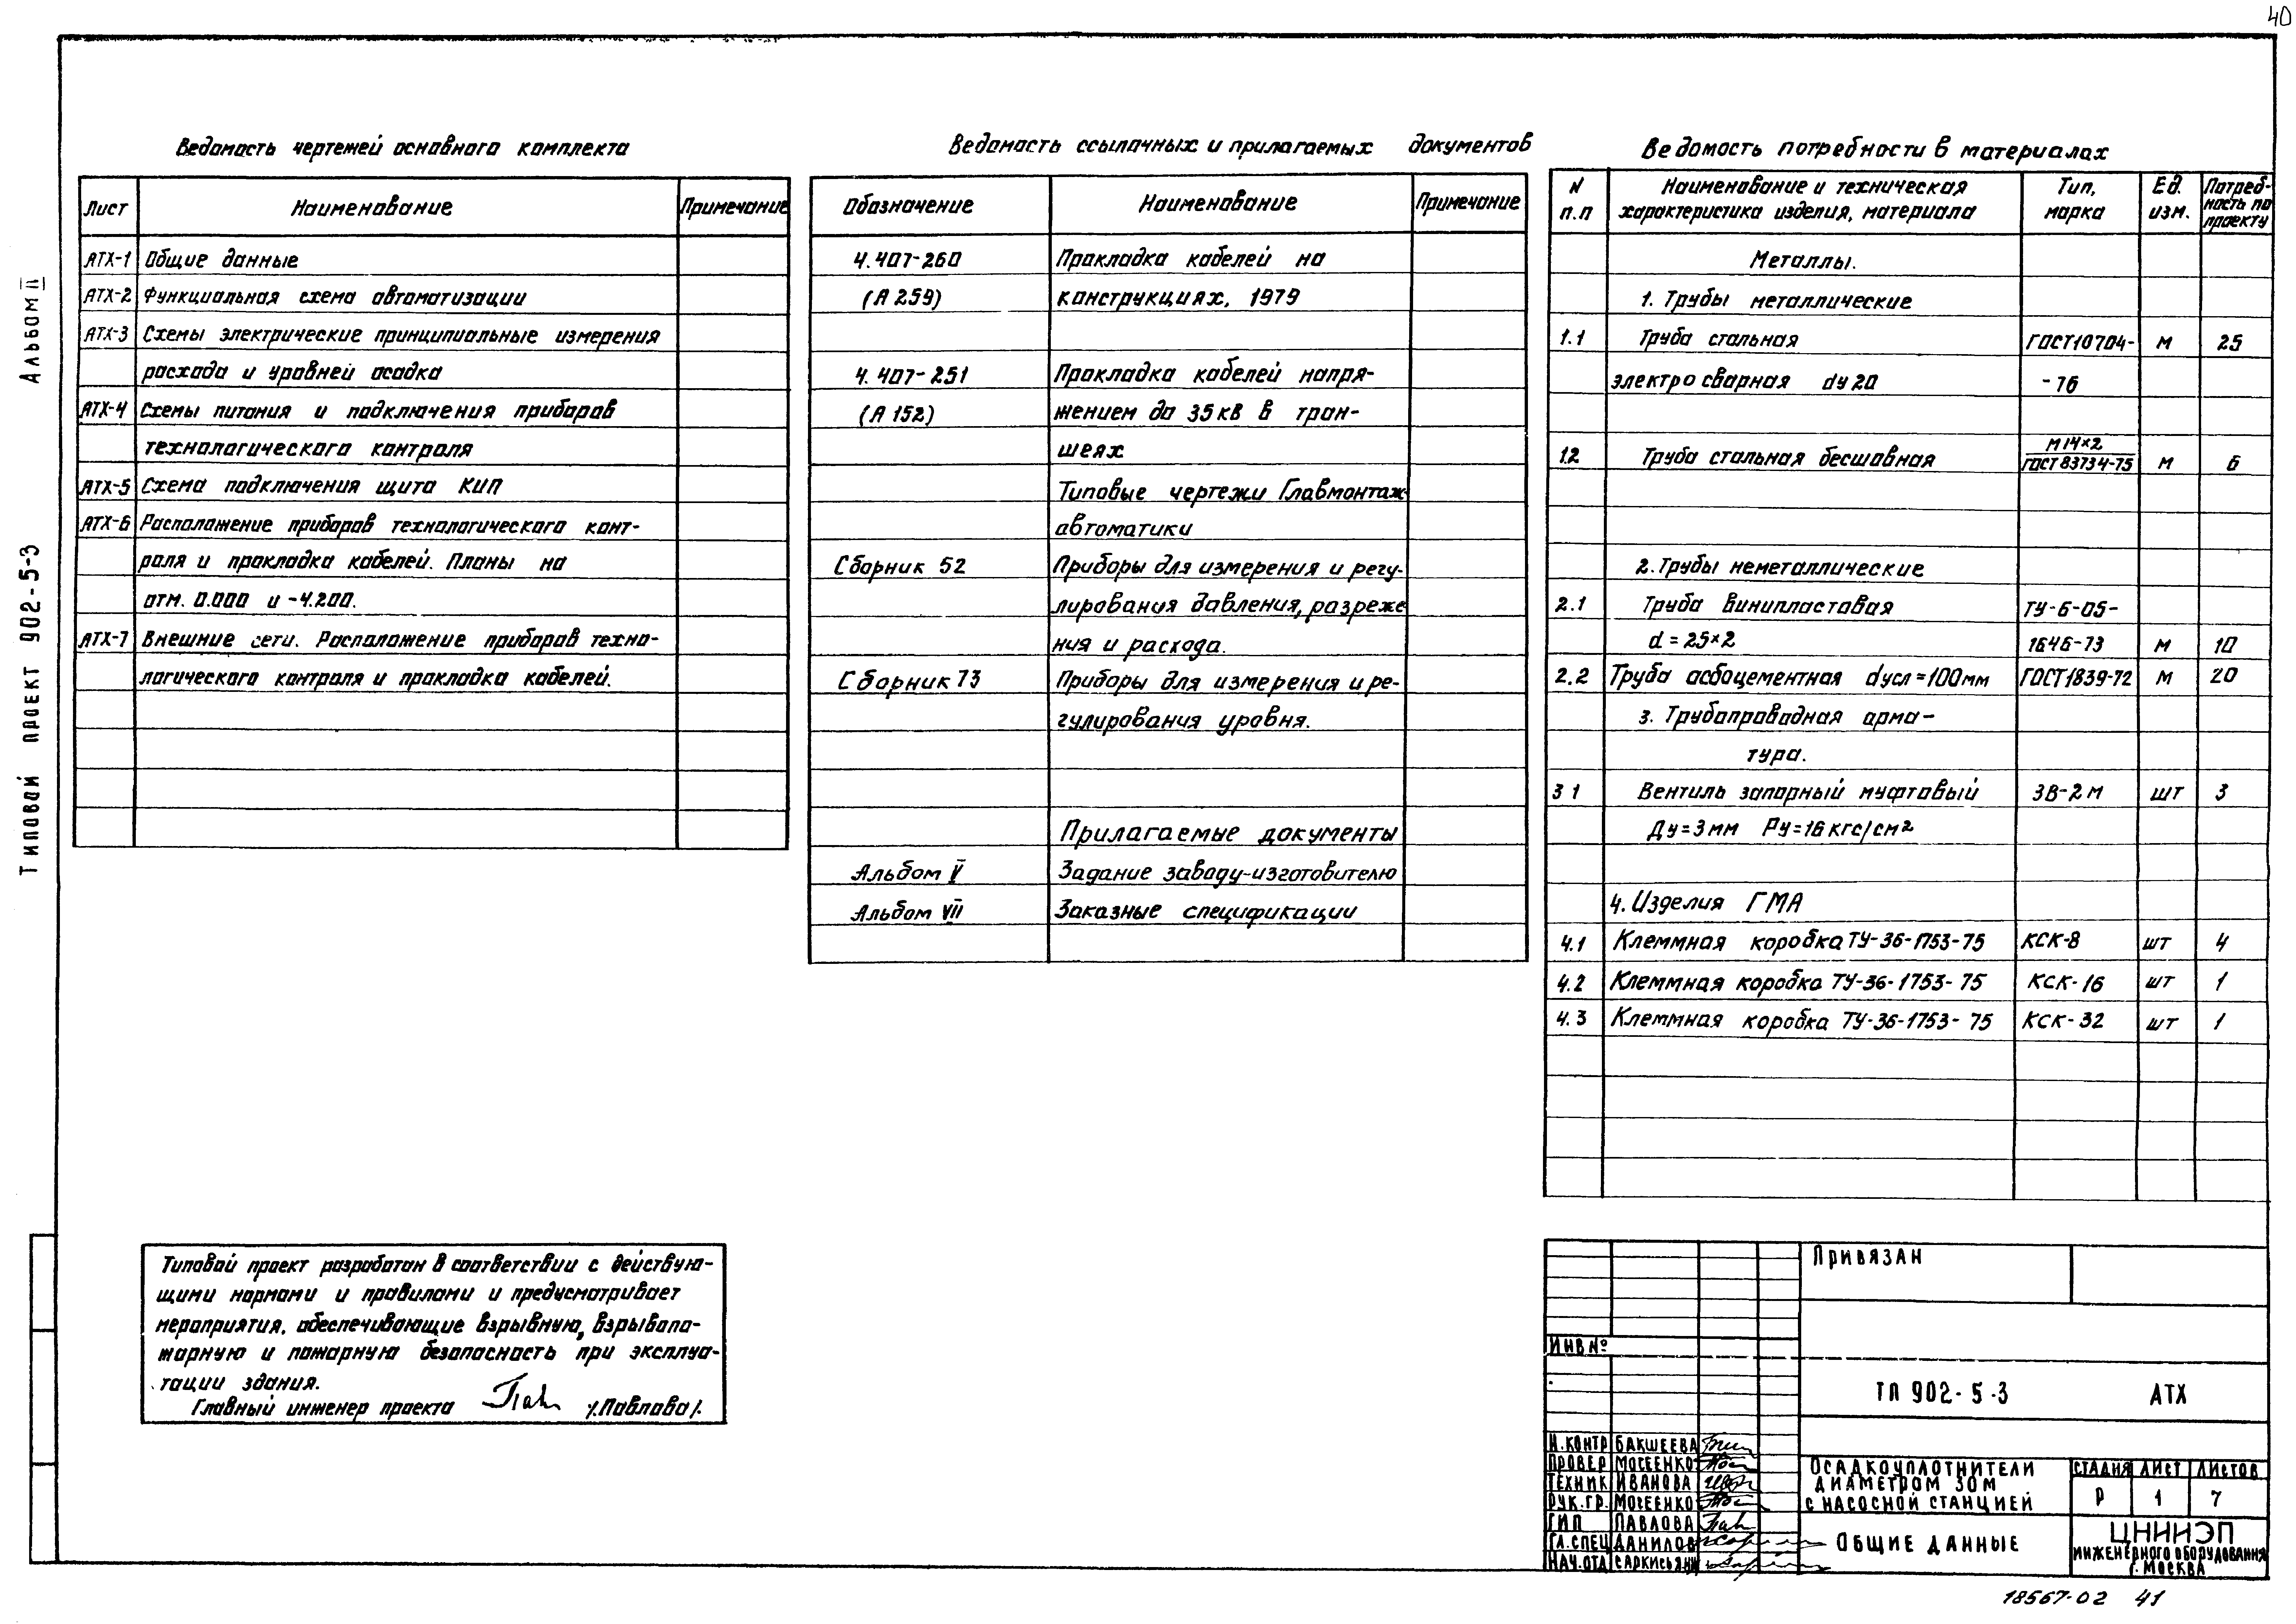 40
Альбом II
Типовой проект 902-5-3
Ведомость чертежей основного комплекта
Лист Наименование Примечание
АТХ-1 Общие данные
АТХ-2 Функциальная схема автоматизации
АТХ-3 Схемы электрические принципиальные измерения
расхода и уровней осадка
АТХ-4 Схемы питания и подключения приборов
технологического контроля
АТХ-5 Схема подключения щита КИП
АТХ-6 Расположение приборов технологического конт-
роля и прокладка кабелей. Планы на
отм. 0.000 и -4.200.
АТХ-7 Внешние сети. Расположение приборов техно-
логического контроля и прокладка кабелей.
Ведомость ссылочных и прилагаемых документов
Обозначение Наименование Примечание
4.407-260 Прокладка кабелей на
(А 259) конструкциях, 1979
4.407-251 Прокладка кабелей напря-
(А 152) жением до 35кВ в тран-
шеях
Типовые чертежи Главмонтаж-
автоматики
Сборник 52 Приборы для измерения и регу-
лирования давления, разреже
ния и расхода.
Сборник 73 Приборы для измерения и ре-
гулирования уровня.
Прилагаемые документы
Альбом V Задание заводу-изготовителю
Альбом VII Заказные спецификации
Ведомость потребности в материалах
N п.п Наименование и техническая характеристика изделия, материала Тип, марка Ед. изм. Потреб-ность по проекту
Металлы.
1. Трубы металлические
1.1 Труба стальная ГОСТ10704- м 25
электросварная dу20 -76
1.2 Труба стальная бесшовная М14×2 ГОСТ83734-75 м 6
2. Трубы неметаллические
2.1 Труба винипластовая ТУ-6-05-
d = 25×2 1646-73 м 10
2.2 Труба асбоцементная dусл=100мм ГОСТ1839-72 м 20
3. Трубопроводная арма-
тура.
3 1 Вентиль запорный муфтовый 3В-2М шт 3
Ду=3мм Ру=16кгс/см²
4. Изделия ГМА
4.1 Клеммная коробка ТУ-36-1753-75 КСК-8 шт 4
4.2 Клеммная коробка ТУ-36-1753-75 КСК-16 шт 1
4.3 Клеммная коробка ТУ-36-1753-75 КСК-32 шт 1
Типовой проект разработан в соответствии с действую-
щими нормами и правилами и предусматривает
мероприятия, обеспечивающие взрывную, взрывопо-
жарную и пожарную безопасность при эксплуа-
тации здания.
Главный инженер проекта /.Павлова/.
Привязан
Инв №
ТП 902-5-3 АТХ
Н.контр Бакшеева
Провер Мосеенко
Техник Иванова
Рук.гр. Мосеенко
ГИП Павлова
Гл.спец Данилов
Нач.отд Саркисьян
Осадкоуплотнители
диаметром 30м
с насосной станцией
Стадия Лист Листов
Р 1 7
Общие данные
ЦНИИЭП
инженерного оборудования
г. Москва
18567-02 41